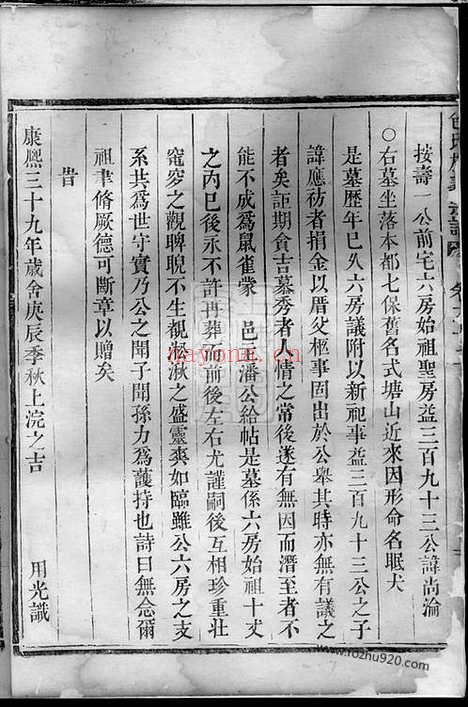 按壽一公前宅六房始祖聖房益三百九十三公諱尚淪
○右墓坐落本都七保舊名式塘山近來因形命名眠犬
是墓歷年已久六房議附以新祀事益三百九十三公之子
諱應祊者捐金以厝父柩事固出於公舉其時亦無有議之
者矣詎期貪吉慕秀者人情之常後遂有無因而潛至者不
能不成爲鼠雀蒙 邑主潘公給帖是墓係六房始祖十丈
之內已後永不許再葬而前後左右尤謹嗣後互相珍重壯
窀穸之觀睥睨不生覩淑之盛靈爽如臨雖公六房之支
系共爲世守實乃公之聞子聞孫力爲護持也詩曰無念爾
祖聿脩厥德可斷章以贈矣
旹
康熙三十九年歲舍庚辰季秋上浣之吉 用光識
nayona.cn
www.rozhu920.com